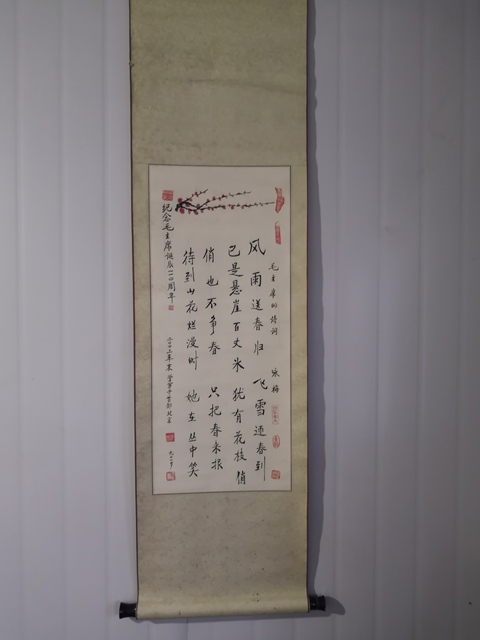 毛主席的诗词 咏梅
风雨送春归 飞雪迎春到
已是悬崖百丈冰 犹有花枝俏
俏也不争春 只把春来报
待到山花烂漫时 她在丛中笑
纪念毛主席诞辰一一〇周年
二〇〇三年 学书于首都北京